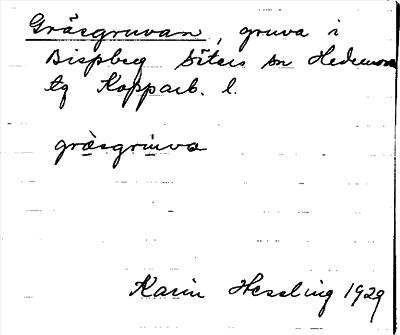 Gräsgruvan, gruva i
Bispbeg Säters sn Hedemora
tg Kopparb. l.
gräsgruva
Karin Hessling 1929